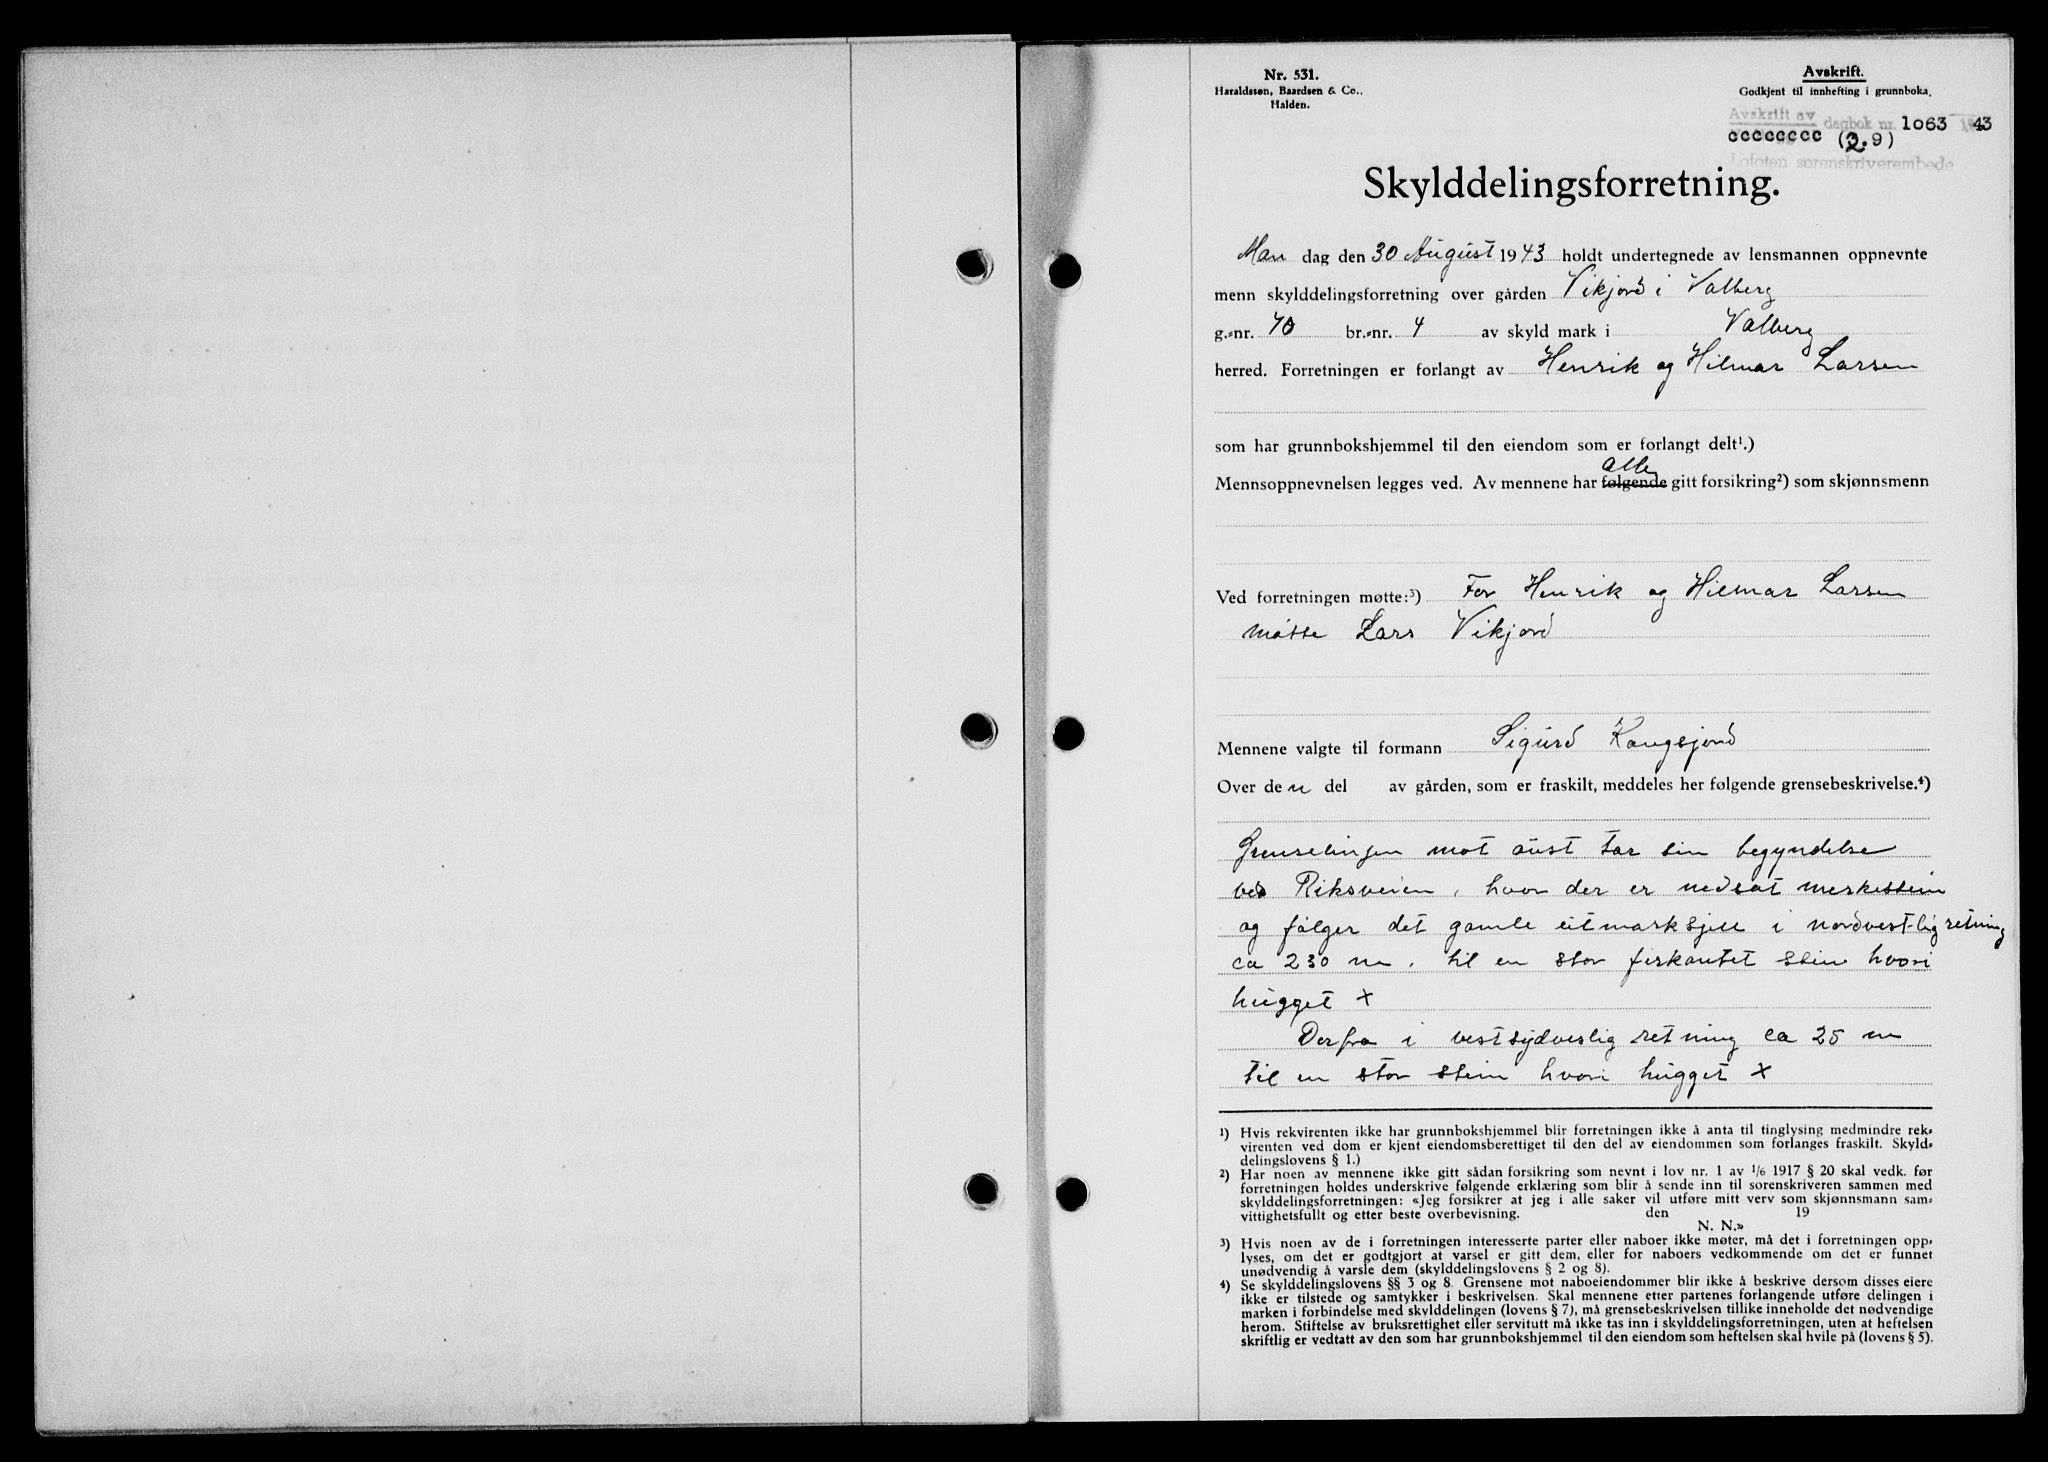 Nr. 531.
Haraldssøn, Baardsen & Co.,
Halden.
Avskrift.
Godkjent til innhefting i grunnboka.
Avskrift av dagbok nr. 1063 1943
cccccccc (2.9)
Lofoten sorenskriverembede
Skylddelingsforretning.
Man dag den 30 August 1943 holdt undertegnede av lensmannen oppnevnte
menn skylddelingsforretning over gården Vikjord i Valberg
g.-nr. 70 br.-nr. 4 av skyld mark i Valberg
herred. Forretningen er forlangt av Henrik og Hilmar Larsen
som har grunnbokshjemmel til den eiendom som er forlangt delt¹.)
alle
Mennsoppnevnelsen legges ved. Av mennene har følgende gitt forsikring²) som skjønnsmenn
Ved forretningen møtte:³) For Henrik og Hilmar Larsen
møtte Lars Vikjord
Mennene valgte til formann Sigurd Kangsjord
Over den del av gården, som er fraskilt, meddeles her følgende grensebeskrivelse.⁴)
Grenselinjen mot aust tar sin begyndelse
ved Riksveien, hvor der er nedsat merkestein
og følger det gamle utmarksgjele i nordvestlig retning
ca 230 m. til en stor firkantet stein hvori
hugget x
Derfra i vestsydveslig retning ca 25 m
til en stor stein hvori hugget x
¹) Hvis rekvirenten ikke har grunnbokshjemmel blir forretningen ikke å anta til tinglysing medmindre rek-
virenten ved dom er kjent eiendomsberettiget til den del av eiendommen som forlanges fraskilt. Skyld-
delingslovens § 1.)
²) Har noen av mennene ikke gitt sådan forsikring som nevnt i lov nr. 1 av 1/6 1917 § 20 skal vedk. før
forretningen holdes underskrive følgende erklæring som blir å sende inn til sorenskriveren sammen med
skylddelingsforretningen: «Jeg forsikrer at jeg i alle saker vil utføre mitt verv som skjønnsmann sam-
vittighetsfullt og etter beste overbevisning. den 19
N. N.»
³) Hvis noen av de i forretningen interesserte parter eller naboer ikke møter, må det i forretningen opp-
lyses, om det er godtgjort at varsel er gitt dem, eller for naboers vedkommende om det er funnet
unødvendig å varsle dem (skylddelingslovens § 2 og 8).
⁴) Se skylddelingslovens §§ 3 og 8. Grensene mot naboeiendommer blir ikke å beskrive dersom disses eiere
ikke er tilstede og samtykker i beskrivelsen. Skal mennene etter partenes forlangende utføre delingen i
marken i forbindelse med skylddelingen (lovens § 7), må grensebeskrivelsen tillike inneholde det nødvendige
herom. Stiftelse av bruksrettighet eller servitutt må ikke tas inn i skylddelingsforretningen, uten at heftelsen
skriftlig er vedtatt av den som har grunnbokshjemmel til den eiendom som heftelsen skal hvile på (lovens § 5).